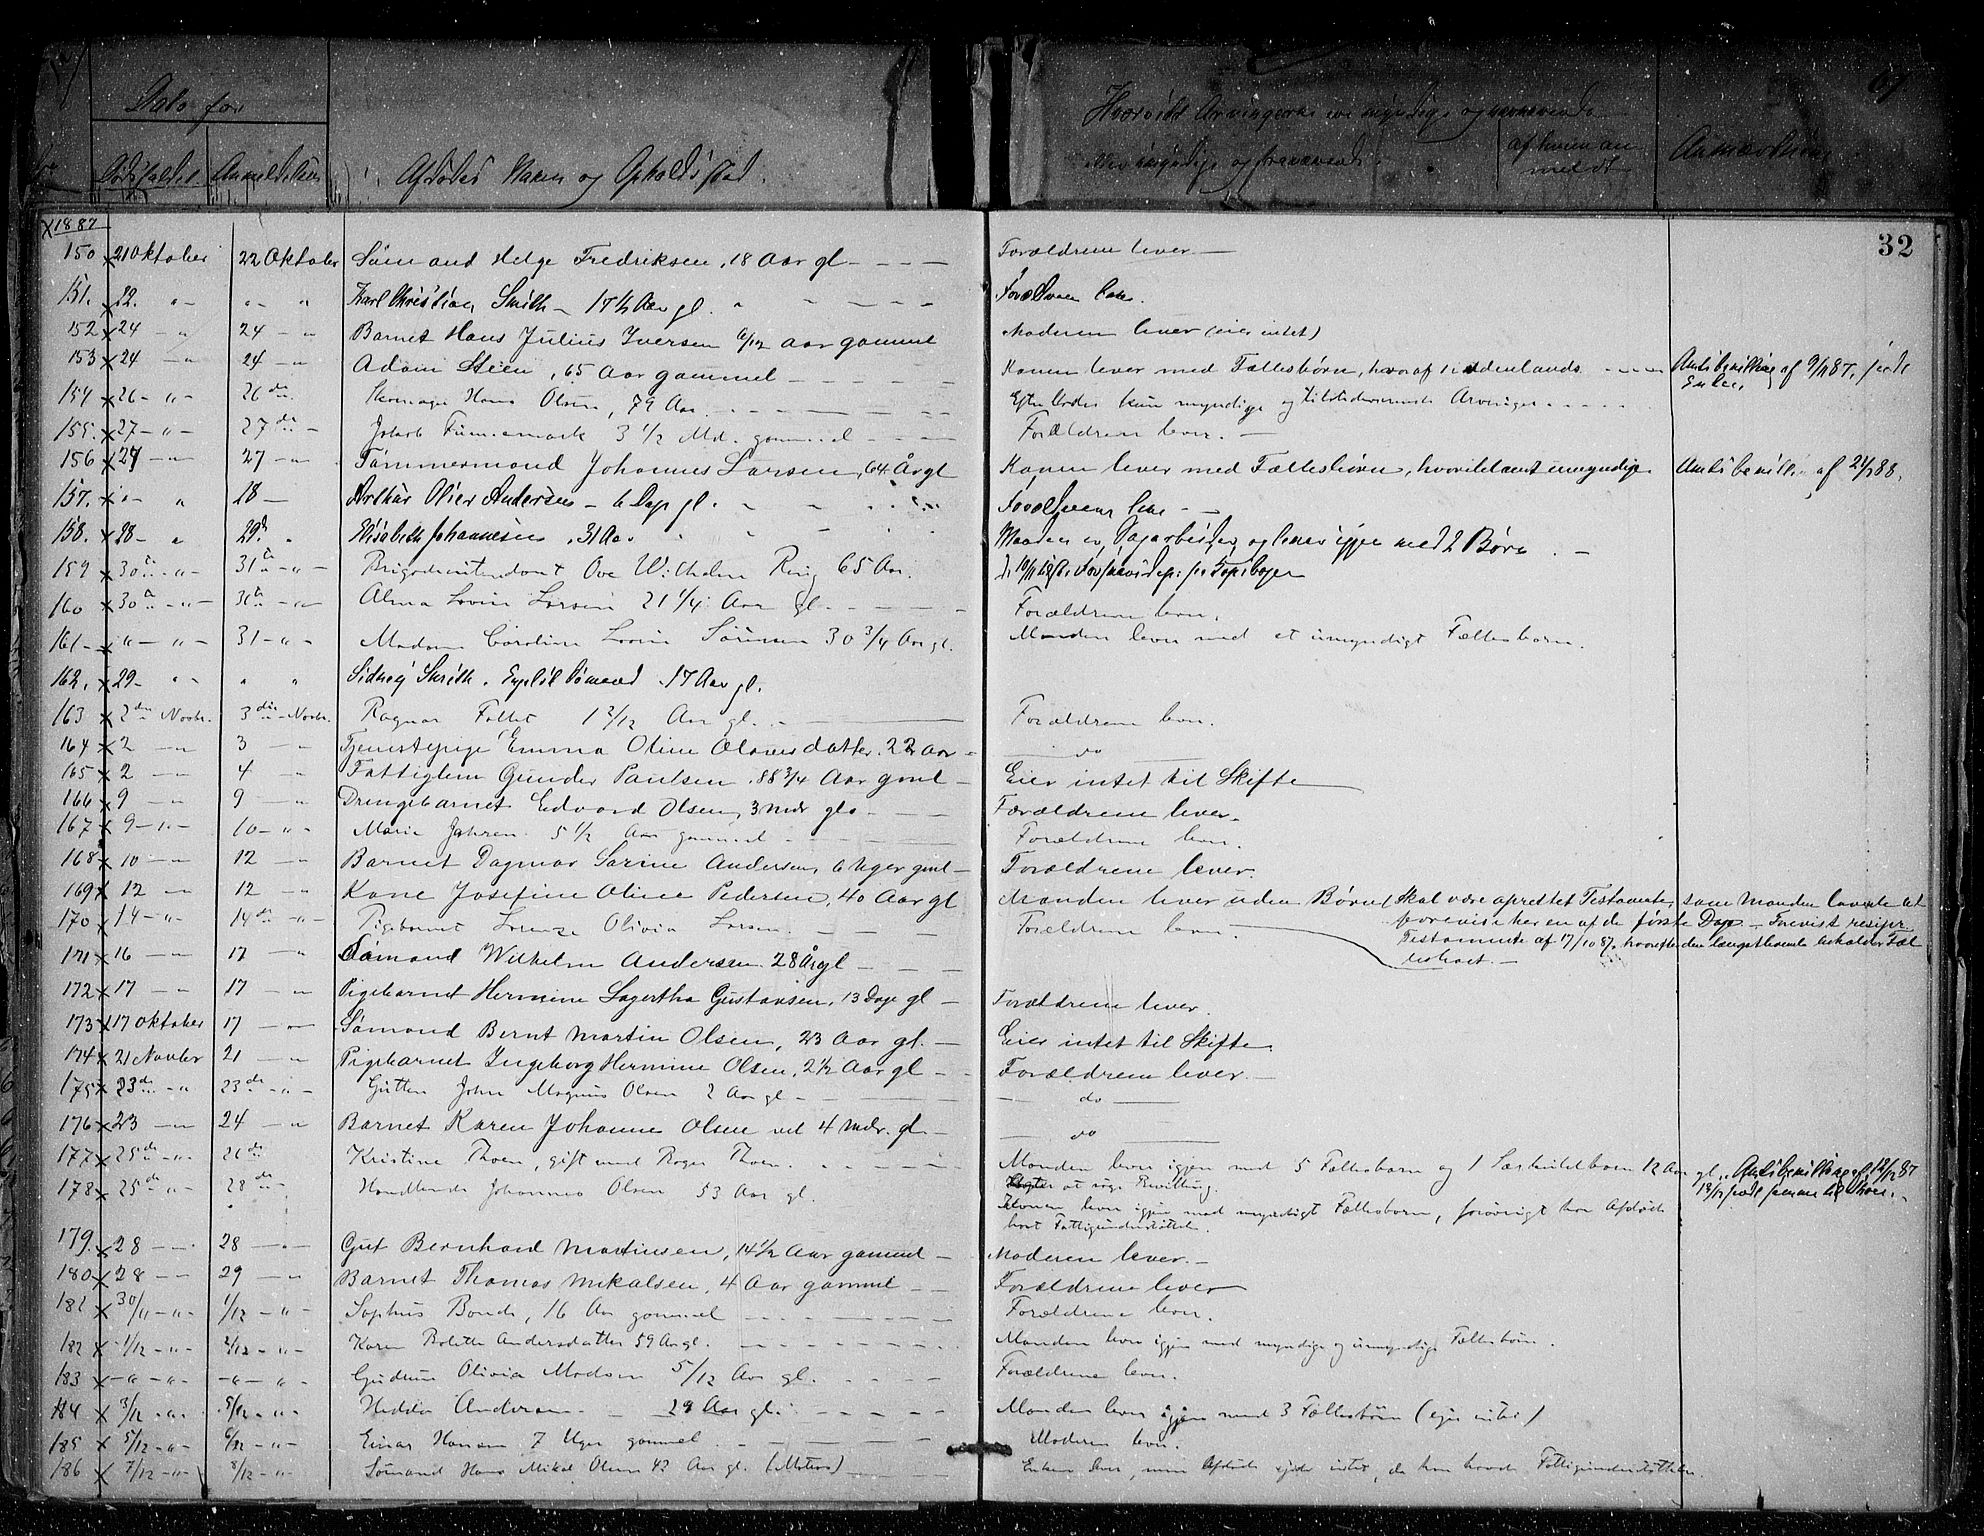 Dato for
Dødsfaldet. Anmeldelsen
Afdødes Navn og Opholdssted.
Hvorvidt Arvingerne ere myndige og nærværende
eller umyndige og fraværende.
af hvem anmeldt
32
1887
150 21 Oktober 22 Oktober Sømand Helge Fredriksen, 18 Aar gl Forældrene lever
151. 22. " " Karl Christian Smith - 17½ Aar gl.
152 24 " 24 " Barnet Hans Julius Iversen 6/12 aar gammel Moderen lever (eier intet)
153 24 " 24 " Adam Steen, 65 Aar gammel Konen lever med Fællesbørn, hvoraf 1 udenlands. Amtsbevilling af
Enke.
154 26 " 26de Skomager Hans Olsen, 79 Aar. kun myndige og tilstedeværende Arvinger.
155. 27 " 27de 3½ Md. gammel Forældrene lever.
156 27 " 27 " Tømmermand Johannes Larsen, 64 År gl Konen lever med Fællesbørn, umyndige Amtsbevill. af
157. " 28 Arthur Andersen - 6 Dage gl.
158. 28 " 29d " Elisabeth Johannesen, 31 Aar Manden er Dagarbeider, og lever igjen med 2 Børn.
159 30te " 31te " Ove Wilhelm Ring 65 Aar.
160 30te " 31te " Alma Lovise Larsen 21¼ Aar gl. Forældrene lever.
161 " " 31 " Madam Caroline Lovise Sørensen 30¾ Aar gl. Manden lever med et umyndigt Fællesbarn.
162. 29 " " " Smith. Sømand. 17 Aar gl.
163 2den Novbr. 3die Novbr. Ragnar 1 2/12 Aar gl. Forældrene lever.
164 2 " 3 " Tjenestepige Emma Oline Olavesdatter. 22 Aar do
165 2 " 4 " Fattiglem Gunder Paulsen. 88¾ Aar gml Eier intet til Skifte
166 9 " 9 " Drengebarnet Edvard Olsen, 3 mdr gl. Forældrene lever.
167 9 " 10 " Marie Jahren 5½ Aar gammel Forældrene lever.
168 10 " 12 " Barnet Dagmar Sarine Andersen, 6 Uger gml Forældrene lever.
169 12 " 12 " Kone Josefine Oline Pedersen, 40 Aar gl Manden lever uden Børn, skal være oprettet Testamente, som Manden lovede at
170 14 " 14de " Pigebarnet Olivia Larsen. Forældrene lever. forevise her en af de første Dage. Forevist
Testamente af 17/10 87, hvorefter den længstlevende beholder
171 16 " 17 " Sømand Wilhelm Andersen. 28 År gl
172 17 " 17 " Pigebarnet Hermine Lagertha Gustavsen, 13 Dage gl Forældrene lever.
173 17 Oktober 17 " Sømand Bernt Martin Olsen, 23 Aar gl. Eier intet til Skifte.
174 21 Novber 21 " Pigebarnet Ingeborg Hermine Olsen, 2½ Aar gl Forældrene lever.
175 23de " 23de " Gutten John Magnus Olsen 2 Aar gl do
176 23 " 24 " Barnet Karen Johanne Olsen 4 mdr. gl. do
177 25de " 26de Kristine Thoen, gift med Roger Thoen. Manden lever igjen med 5 Fællesbørn og 1 Særkuldsbarn 12 Aar gl. Amtsbevilling af 12/12 87
at søge Bevilling.
178 25de " 28de " Johannes Olsen 53 Aar gl. Konen lever igjen med myndigt Fællesbarn, forøvrigt har Afdøde
havt Fattigunderstøttelse.
179. 28 " 28 " Gut Bernhard Martinsen, 14½ Aar gammel Moderen lever.
180 28 " 29 " Barnet Thomas Mikalsen, 4 Aar gammel Forældrene lever
181 30/11 " 1/12 " Sophus Bonde, 16 Aar gammel Forældrene lever.
182 1/12 " 2/12 " Karen Bolette Andersdatter 59 Aar gl. Manden lever igjen med myndige og umyndige Fællesbørn.
183 " " " " Gudrun Olivia Madsen 5/12 Aar gl. Forældrene lever.
184 3/12 " 5/12 " Hedda Andersen 29 Aar gl. Manden lever igjen med 3 Fællesbørn (eier intet)
185 5/12 " 6/12 " Einar Hansen 7 Uger gammel Moderen lever.
186 7/12 " 8/12 " Sømand Hans Mikal Olsen 42 Aar gl. Enken lever, men Afdøde eiede intet, da han havde Fattigunderstøttelse.